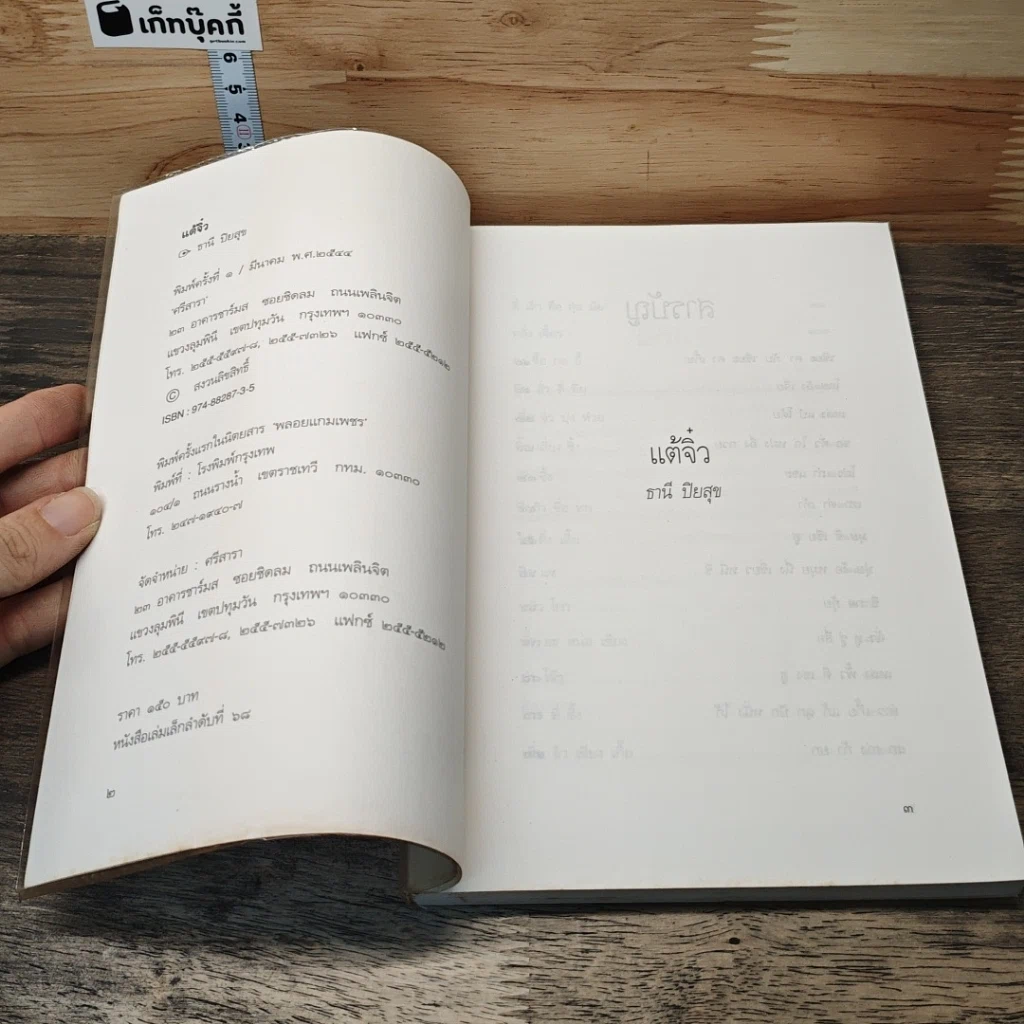 เก็ทบุ๊คกี้
6
5
4
3
แต้จิ๋ว
ธานี ปิยสุข
พิมพ์ครั้งที่ ๑ / มีนาคม พ.ศ.๒๕๔๔
'ศรีสารา'
๒๓ อาคารชาร์มส ซอยชิดลม ถนนเพลินจิต
แขวงลุมพินี เขตปทุมวัน กรุงเทพฯ ๑๐๓๓๐
โทร. ๒๕๕-๕๕๙๗-๘, ๒๕๕-๗๓๒๖ แฟกซ์ ๒๕๕-๕๒๑๒
© สงวนลิขสิทธิ์
ISBN : 974-88287-3-5
พิมพ์ครั้งแรกในนิตยสาร "พลอยแกมเพชร"
พิมพ์ที่ : โรงพิมพ์กรุงเทพ
๑๐๔/๑ ถนนรางน้ำ เขตราชเทวี กทม. ๑๐๓๓๐
โทร. ๒๔๗-๑๙๔๐-๗
จัดจำหน่าย : ศรีสารา
๒๓ อาคารชาร์มส ซอยชิดลม ถนนเพลินจิต
แขวงลุมพินี เขตปทุมวัน กรุงเทพฯ ๑๐๓๓๐
โทร. ๒๕๕-๕๕๙๗-๘, ๒๕๕-๗๓๒๖ แฟกซ์ ๒๕๕-๕๒๑๒
ราคา ๑๕๐ บาท
หนังสือเล่มเล็กลำดับที่ ๖๘
๒
แต้จิ๋ว
ธานี ปิยสุข
๓